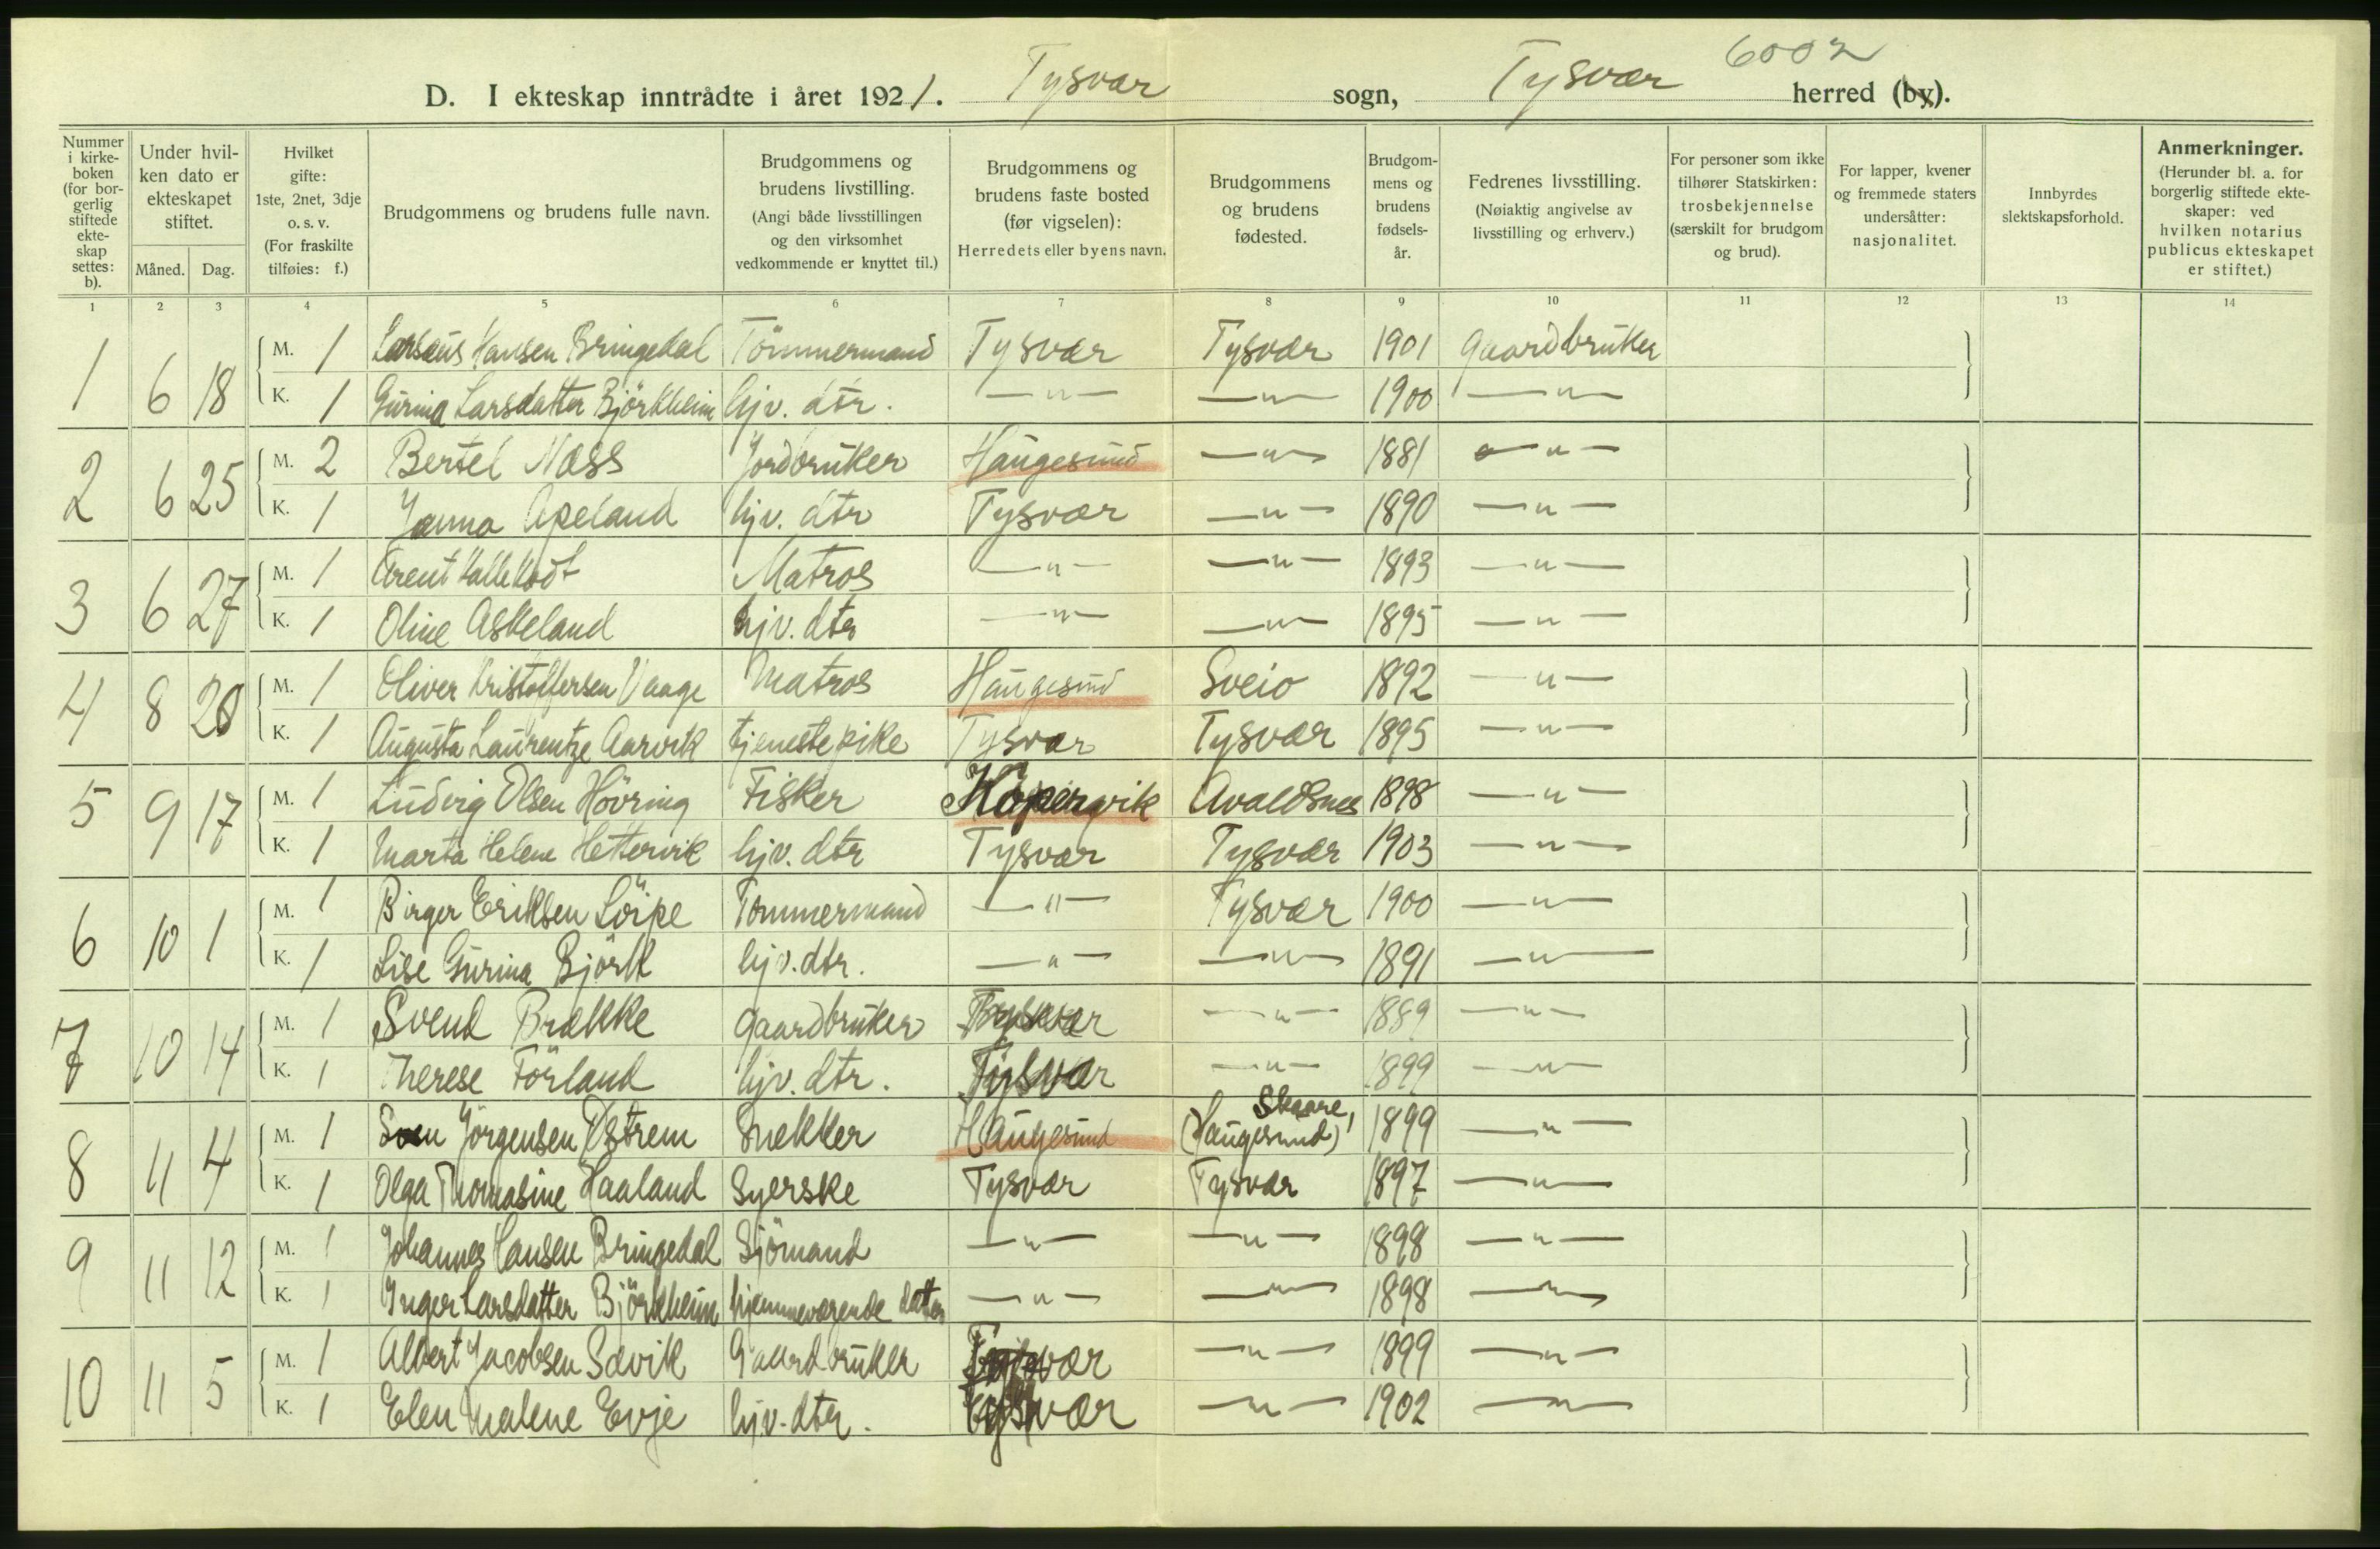 6002
D. I ekteskap inntrådte i året 1921. Tysvær sogn, Tysvær herred (by).
Nummer i kirke- boken (for bor- gerlig stiftede ekte- skap settes: b).
Under hvil- ken dato er ekteskapet stiftet.
Måned. Dag.
Hvilket gifte: 1ste, 2net, 3dje o. s. v. (For fraskilte tilføies: f.)
Brudgommens og brudens fulle navn.
Brudgommens og brudens livstilling. (Angi både livsstillingen og den virksomhet vedkommende er knyttet til.)
Brudgommens og brudens faste bosted (før vigselen): Herredets eller byens navn.
Brudgommens og brudens fødested.
Brudgom- mens og brudens fødsels- år.
Fedrenes livsstilling. (Nøiaktig angivelse av livsstilling og erhverv.)
For personer som ikke tilhører Statskirken: trosbekjennelse (særskilt for brudgom og brud).
For lapper, kvener og fremmede staters undersåtter: nasjonalitet.
Innbyrdes slektskapsforhold.
Anmerkninger. (Herunder bl. a. for borgerlig stiftede ekte- skaper: ved hvilken notarius publicus ekteskapet er stiftet.)
1 2 3 4 5 6 7 8 9 10 11 12 13 14
1 6 18 M. 1 Larsæus Hansen Bringedal Tömmermand Tysvær Tysvær 1901 Gaardbruker
K. 1 Gurina Larsdatter Björkheim hjv. dtr. —"— —"— 1900 —"—
2 6 25 M. 2 Bertel Næss Jordbruker Haugesund —"— 1881 —"—
K. 1 Janna Apeland hjv. dtr Tysvær —"— 1890 —"—
3 6 27 M. 1 Arent Kallekodt Matros —"— —"— 1893 —"—
K. 1 Oline Askeland hjv. dtr —"— —"— 1895 —"—
4 8 20 M. 1 Oliver Kristoffersen Vaage Matros Haugesund Sveio 1892 —"—
K. 1 Augusta Laurentze Aarvik tjenestepike Tysvær Tysvær 1895 —"—
5 9 17 M. 1 Ludvig Olsen Hövring Fisker Kopervik Avaldsnes 1898 —"—
K. 1 Marta Helene Hettervik hjv. dtr Tysvær Tysvær 1903 —"—
6 10 1 M. 1 Birger Eriksen Löipe Tömmermand —"— Tysvær 1900 —"—
K. 1 Lise Gurina Björk hjv. dtr. —"— —"— 1891 —"—
7 10 14 M. 1 Svend Brække Gaardbruker Tysvær —"— 1889 —"—
K. 1 Therese Förland hjv. dtr. Tysvær —"— 1899 —"—
8 11 4 M. 1 Sven Jörgensen Östrem Snekker Haugesund Skaare, (Haugesund) 1899 —"—
K. 1 Olga Thomasine Haaland Syerske Tysvær Tysvær 1897 —"—
9 11 12 M. 1 Johannes Hansen Bringedal Sjömand —"— —"— 1898 —"—
K. 1 Inger Larsdatter Björkheim hjemmeværende datter —"— —"— 1898 —"—
10 11 5 M. 1 Albert Jacobsen Sævik Gaardbruker Tysvær —"— 1899 —"—
K. 1 Elen Malene Evje hjv. dtr. Tysvær —"— 1902 —"—